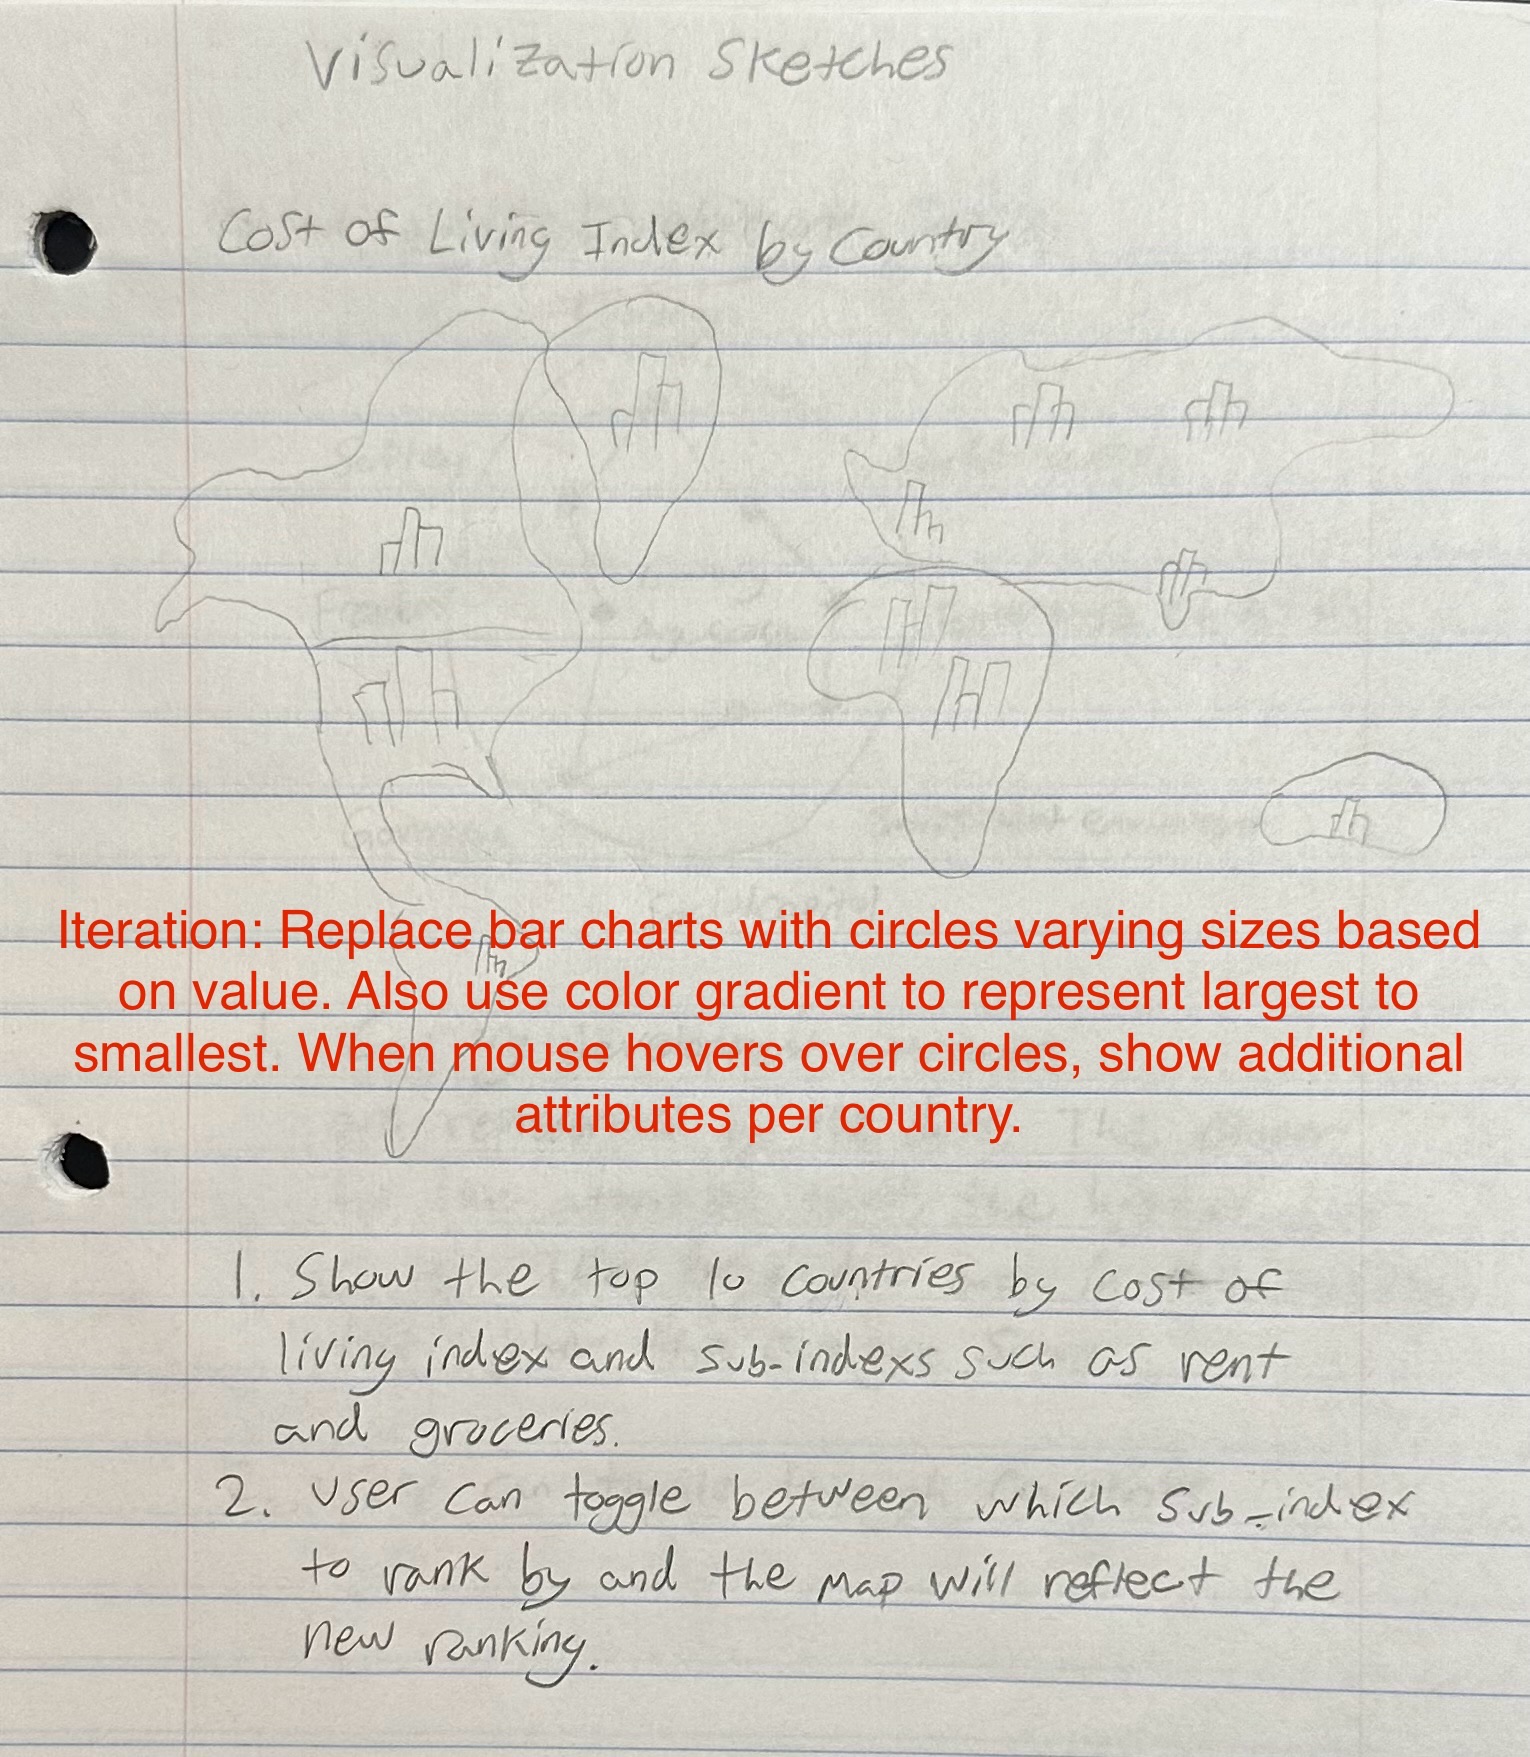 Visualization Sketches
Cost of Living Index by Country
Iteration: Replace bar charts with circles varying sizes based
on value. Also use color gradient to represent largest to
smallest. When mouse hovers over circles, show additional
attributes per country.
1. Show the top 10 countries by cost of
living index and sub-indexs such as rent
and groceries.
2. User can toggle between which sub-index
to rank by and the map will reflect the
new ranking.